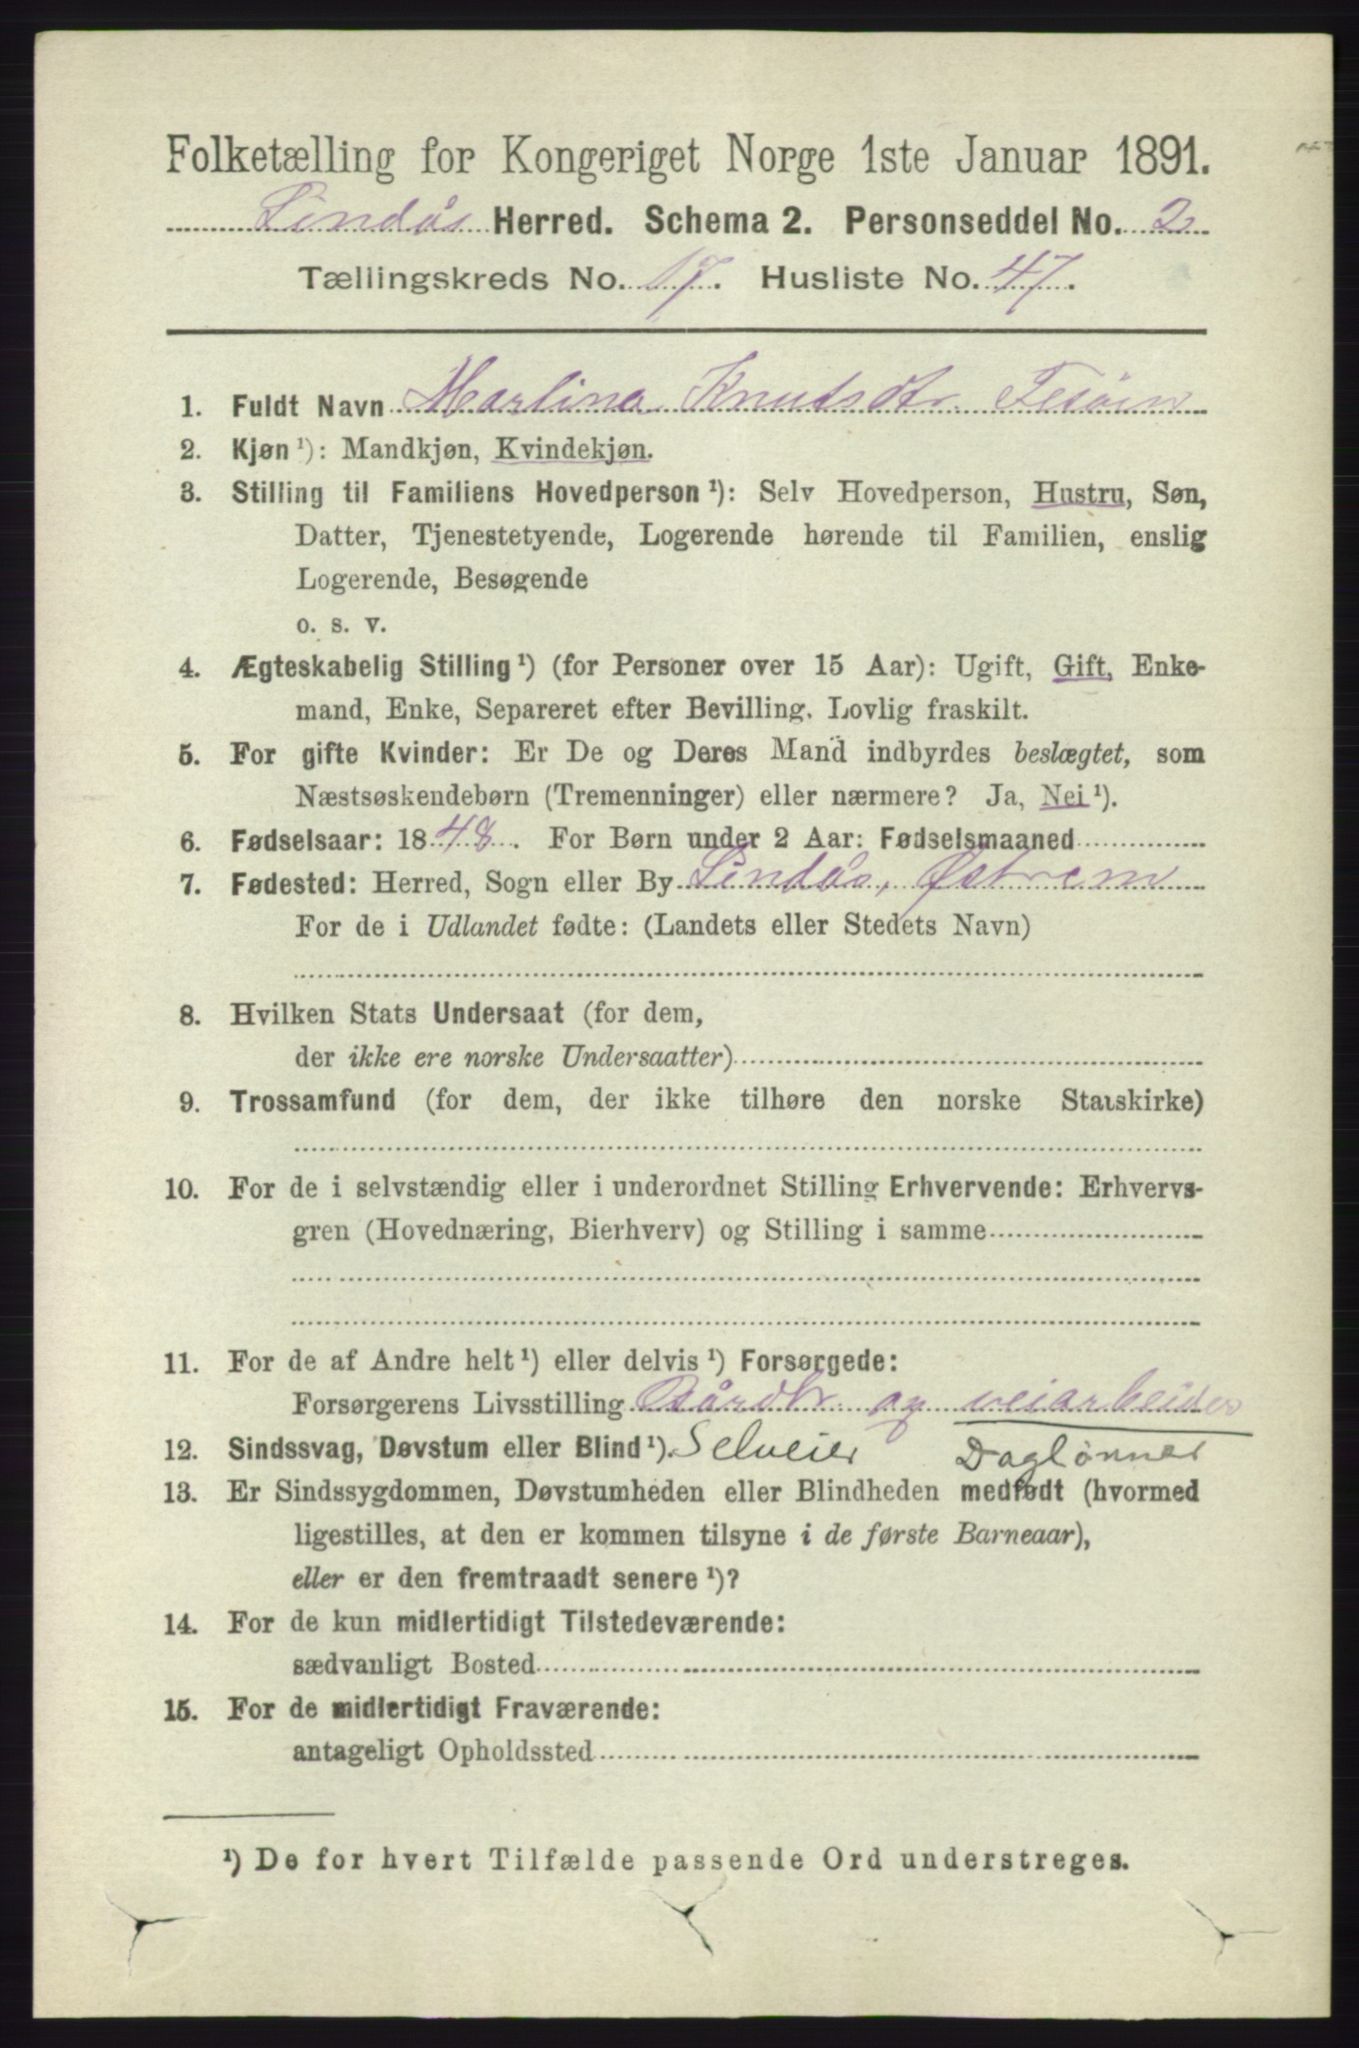 Folketælling for Kongeriget Norge 1ste Januar 1891.
Lindås Herred. Schema 2. Personseddel No. 2
Tællingskreds No. 17. Husliste No. 47.
1. Fuldt Navn Marlina Knutsdtr.
2. Kjøn ¹): Mandkjøn, Kvindekjøn.
3. Stilling til Familiens Hovedperson ¹): Selv Hovedperson, Hustru, Søn,
Datter, Tjenestetyende, Logerende hørende til Familien, enslig
Logerende, Besøgende
o. s. v.
4. Ægteskabelig Stilling ¹) (for Personer over 15 Aar): Ugift, Gift, Enke-
mand, Enke, Separeret efter Bevilling. Lovlig fraskilt.
5. For gifte Kvinder: Er De og Deres Mand indbyrdes beslægtet, som
Næstsøskendebørn (Tremenninger) eller nærmere? Ja, Nei ¹).
6. Fødselsaar: 1848. For Børn under 2 Aar: Fødselsmaaned
7. Fødested: Herred, Sogn eller By Lindås, Østrem
For de i Udlandet fødte: (Landets eller Stedets Navn)
8. Hvilken Stats Undersaat (for dem,
der ikke ere norske Undersaatter)
9. Trossamfund (for dem, der ikke tilhøre den norske Statskirke)
10. For de i selvstændig eller i underordnet Stilling Erhvervende: Erhvervs-
gren (Hovednæring, Bierhverv) og Stilling i samme
11. For de af Andre helt ¹) eller delvis ¹) Forsørgede:
Forsørgerens Livsstilling Gårdbr. og veiarbeider
12. Sindssvag, Døvstum eller Blind ¹). Selveier Dagлønner
13. Er Sindssygdommen, Døvstumheden eller Blindheden medfødt (hvormed
ligestilles, at den er kommen tilsyne i de første Barneaar),
eller er den fremtraadt senere ¹)?
14. For de kun midlertidigt Tilstedeværende:
sædvanligt Bosted
15. For de midlertidigt Fraværende:
antageligt Opholdssted
¹) De for hvert Tilfælde passende Ord understreges.